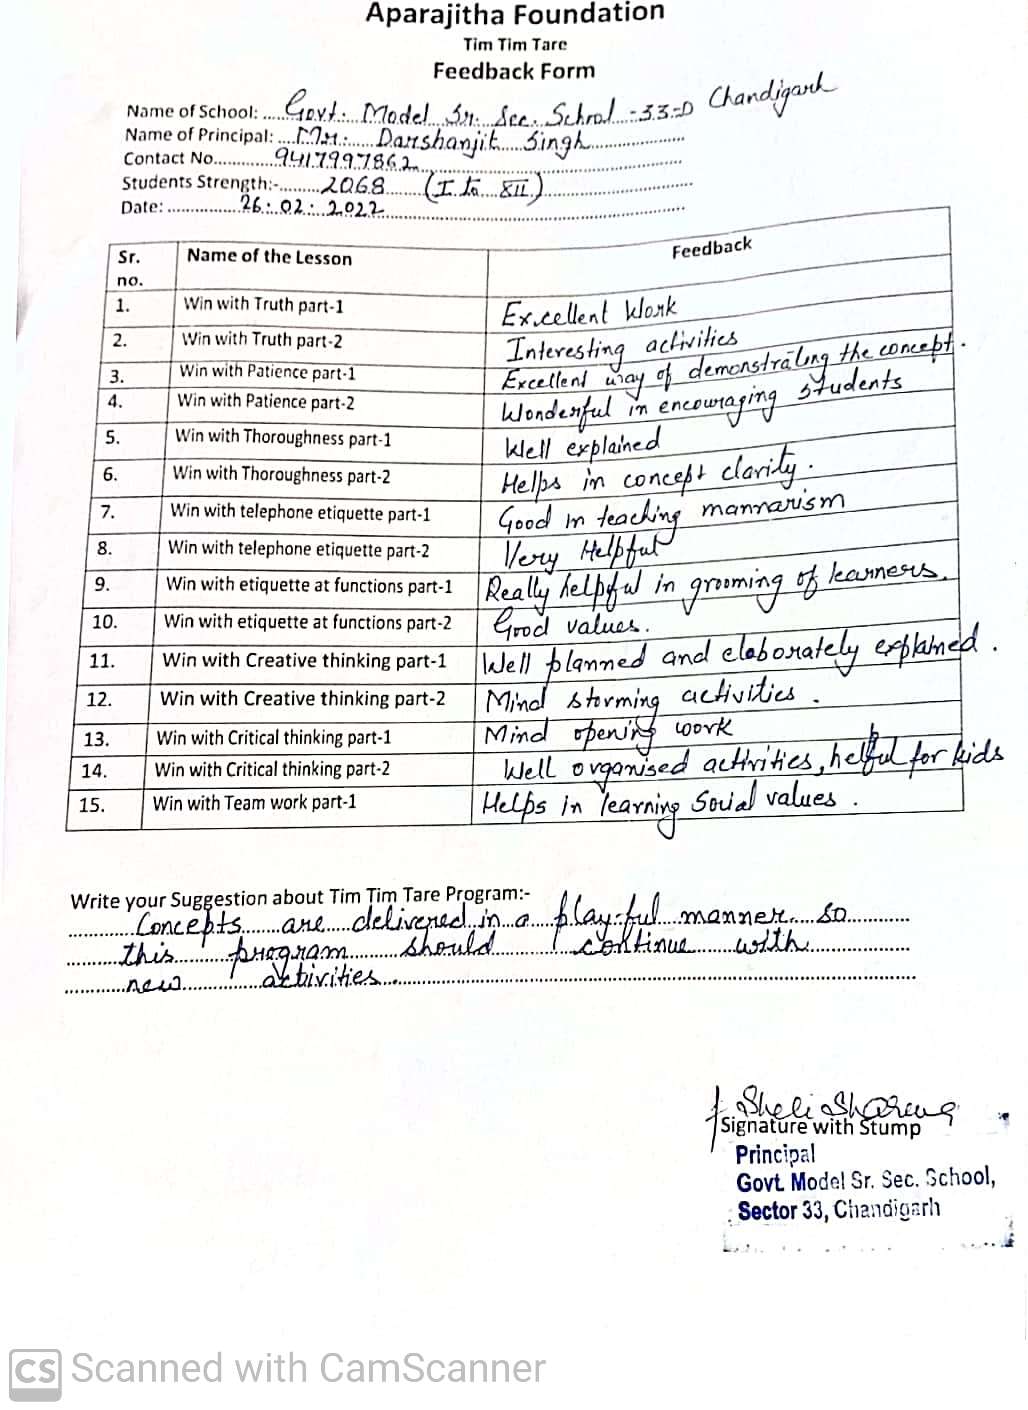 Aparajitha Foundation
Tim Tim Tare
Feedback Form
Name of School: Govt. Model Sr. Sec. School - 33-D Chandigarh
Name of Principal: Mr. Darshanjit Singh
Contact No. 9417997862
Students Strength:- 2068 (I to XII)
Date: 26.02.2022
Sr. no. Name of the Lesson Feedback
1. Win with Truth part-1 Excellent Work
2. Win with Truth part-2 Interesting activities
3. Win with Patience part-1 Excellent way of demonstrating the concept.
4. Win with Patience part-2 Wonderful in encouraging students
5. Win with Thoroughness part-1 Well explained
6. Win with Thoroughness part-2 Helps in concept clarity.
7. Win with telephone etiquette part-1 Good in teaching mannarism
8. Win with telephone etiquette part-2 Very Helpful
9. Win with etiquette at functions part-1 Really helpful in grooming of learners.
10. Win with etiquette at functions part-2 Good values.
11. Win with Creative thinking part-1 Well planned and elaborately explained.
12. Win with Creative thinking part-2 Mind storming activities.
13. Win with Critical thinking part-1 Mind opening work
14. Win with Critical thinking part-2 Well organised activities, helpful for kids
15. Win with Team work part-1 Helps in learning Social values.
Write your Suggestion about Tim Tim Tare Program:-
Concepts are delivered in a playful manner so
this program should continue with
new activities.
Sheli Sharma
Signature with Stump
Principal
Govt. Model Sr. Sec. School,
Sector 33, Chandigarh
CS Scanned with CamScanner